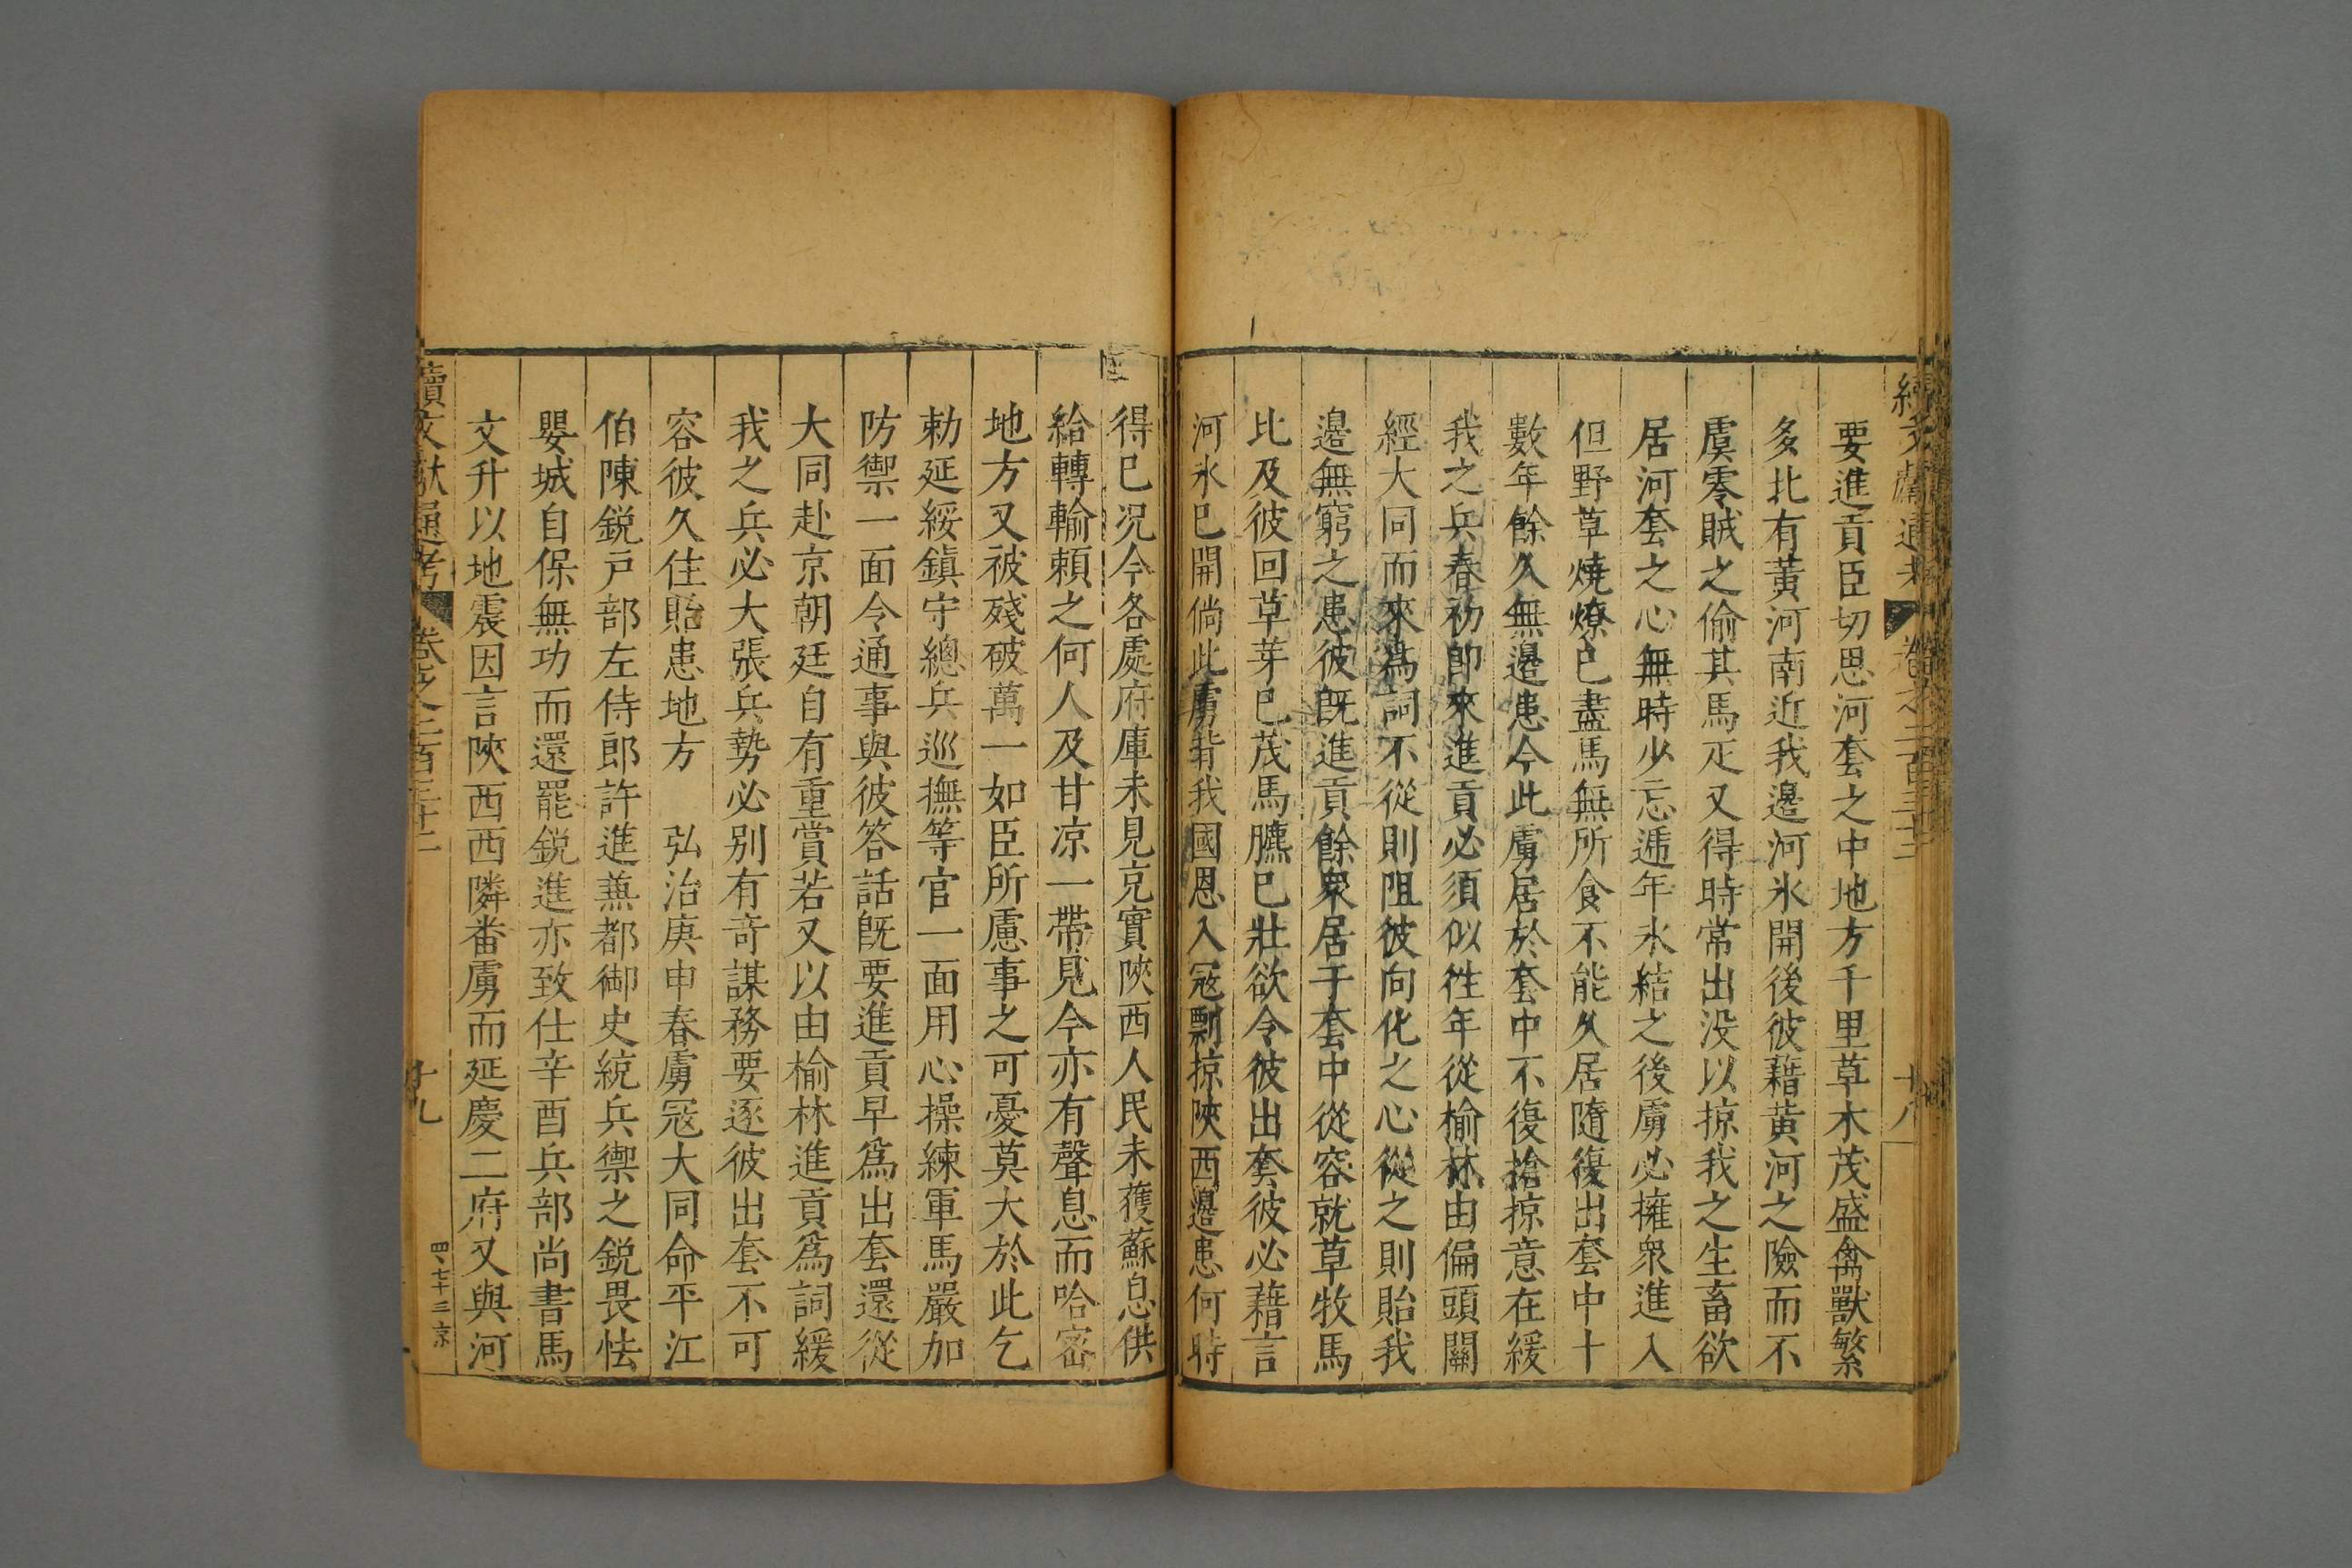 續文獻通考 卷之二百三十二 十八
要進貢臣切思河套之中地方千里草木茂盛禽獸繁
多北有黃河南近我邊河氷開後彼藉黃河之險而不
虞零賊之偷其馬疋又得時常出没以掠我之生畜欲
居河套之心無時少忘遞年氷結之後虜必擁衆進入
但野草燒燎已盡馬無所食不能久居隨復出套中十
數年餘久無邊患今此虜居於套中不復搶掠意在緩
我之兵春初卽來進貢必須似徃年從榆林由偏頭關
經大同而來爲詞不從則阻彼向化之心從之則貽我
邊無窮之患彼旣進貢餘衆居于套中從容就草牧馬
比及彼回草芽已茂馬臕已壯欲令彼出套彼必藉言
河氷已開倘此虜背我國恩入寇剽掠陝西邊患何時
得已况今各處府庫未見充實陝西人民未獲蘇息供
給轉輸賴之何人及甘凉一帶見今亦有聲息而哈密
地方又被殘破萬一如臣所慮事之可憂莫大於此乞
勅延綏鎮守總兵巡撫等官一面用心操練軍馬嚴加
防禦一面令通事與彼答話旣要進貢早爲出套還從
大同赴京朝廷自有重賞若又以由榆林進貢爲詞緩
我之兵必大張兵勢必别有竒謀務要逐彼出套不可
容彼久住貽患地方 弘治庚申春虜寇大同命平江
伯陳鋭戸部左侍郎許進蕪都御史統兵禦之鋭畏怯
嬰城自保無功而還罷鋭進亦致仕辛酉兵部尚書馬
文升以地震因言陝西西隣番虜而延慶二府又與河
續文獻通考 卷之二百三十二 十九
四七十三京